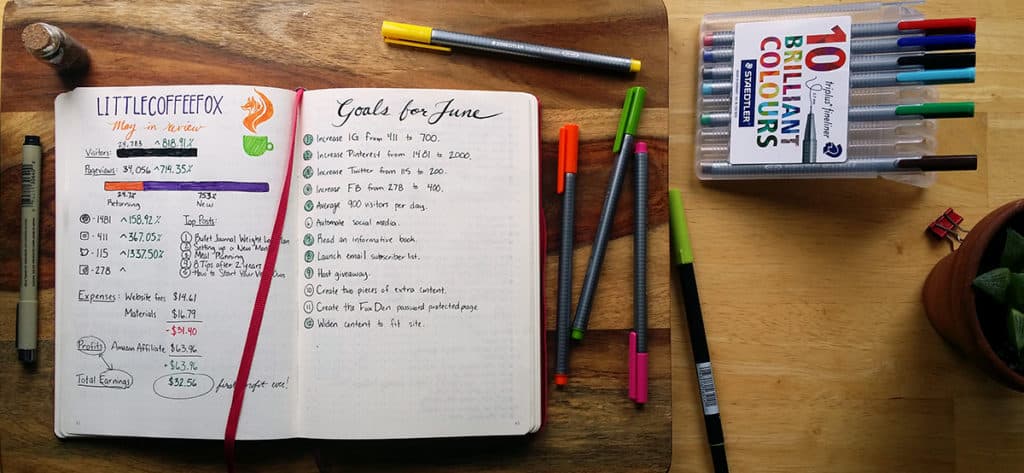 LITTLECOFFEEFOX
May in review
24,783 ^818.91%
Visitors:
Pageviews: 34,056 ^714.35%
24.7% 75.3%
Returning New
- 1481 ^158.92%
- 411 ^367.05%
- 115 ^1337.50%
- 278 ^
Top Posts:
① Bullet Journal Weight
② Setting up a New
③ Meal Planning
④ 8 Tips after 2 years
⑤ How to Start Your
Expenses: Website fees $14.61
Materials $16.79
- $31.40
Profits Amazon Affiliate $63.96
+ $63.96
Total Earnings $32.56 first profit ever!
Goals for June
① Increase IG from 411 to 700.
② Increase Pinterest from 1481 to 2000.
③ Increase Twitter from 115 to 200.
④ Increase FB from 278 to 400.
⑤ Average 900 visitors per day.
⑥ Automate social media.
⑦ Read an informative book.
⑧ Launch email subscriber list.
⑨ Host giveaway.
⑩ Create two pieces of extra content.
⑪ Create the Fox Den password protected page
⑫ Widen content to fit site.
10
BRILLIANT
COLOURS
triplus fineliner
STAEDTLER
STAEDTLER